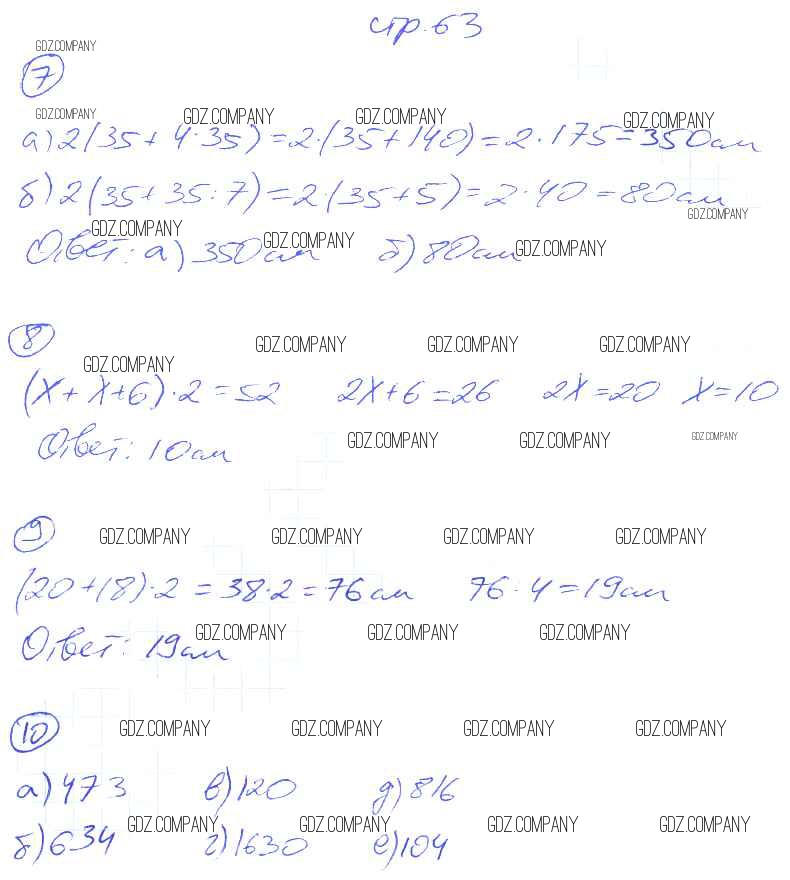 стр. 63
GDZ.COMPANY
7
GDZ.COMPANY GDZ.COMPANY GDZ.COMPANY GDZ.COMPANY
а) 2(35 + 4·35) = 2·(35+140) = 2·175 = 350см
б) 2(35 + 35:7) = 2·(35+5) = 2·40 = 80см
GDZ.COMPANY
GDZ.COMPANY GDZ.COMPANY GDZ.COMPANY
Ответ: а) 350см б) 80см
8
GDZ.COMPANY GDZ.COMPANY GDZ.COMPANY
GDZ.COMPANY
(x + x+6)·2 = 52 2x+6 = 26 2x = 20 x = 10
GDZ.COMPANY GDZ.COMPANY GDZ.COMPANY
Ответ: 10см
9
GDZ.COMPANY GDZ.COMPANY GDZ.COMPANY GDZ.COMPANY
(20+18)·2 = 38·2 = 76см 76:4 = 19см
GDZ.COMPANY GDZ.COMPANY GDZ.COMPANY
Ответ: 19см
10
GDZ.COMPANY GDZ.COMPANY GDZ.COMPANY GDZ.COMPANY
а) 473 в) 120 д) 816
GDZ.COMPANY GDZ.COMPANY GDZ.COMPANY GDZ.COMPANY
б) 634 г) 1630 е) 104